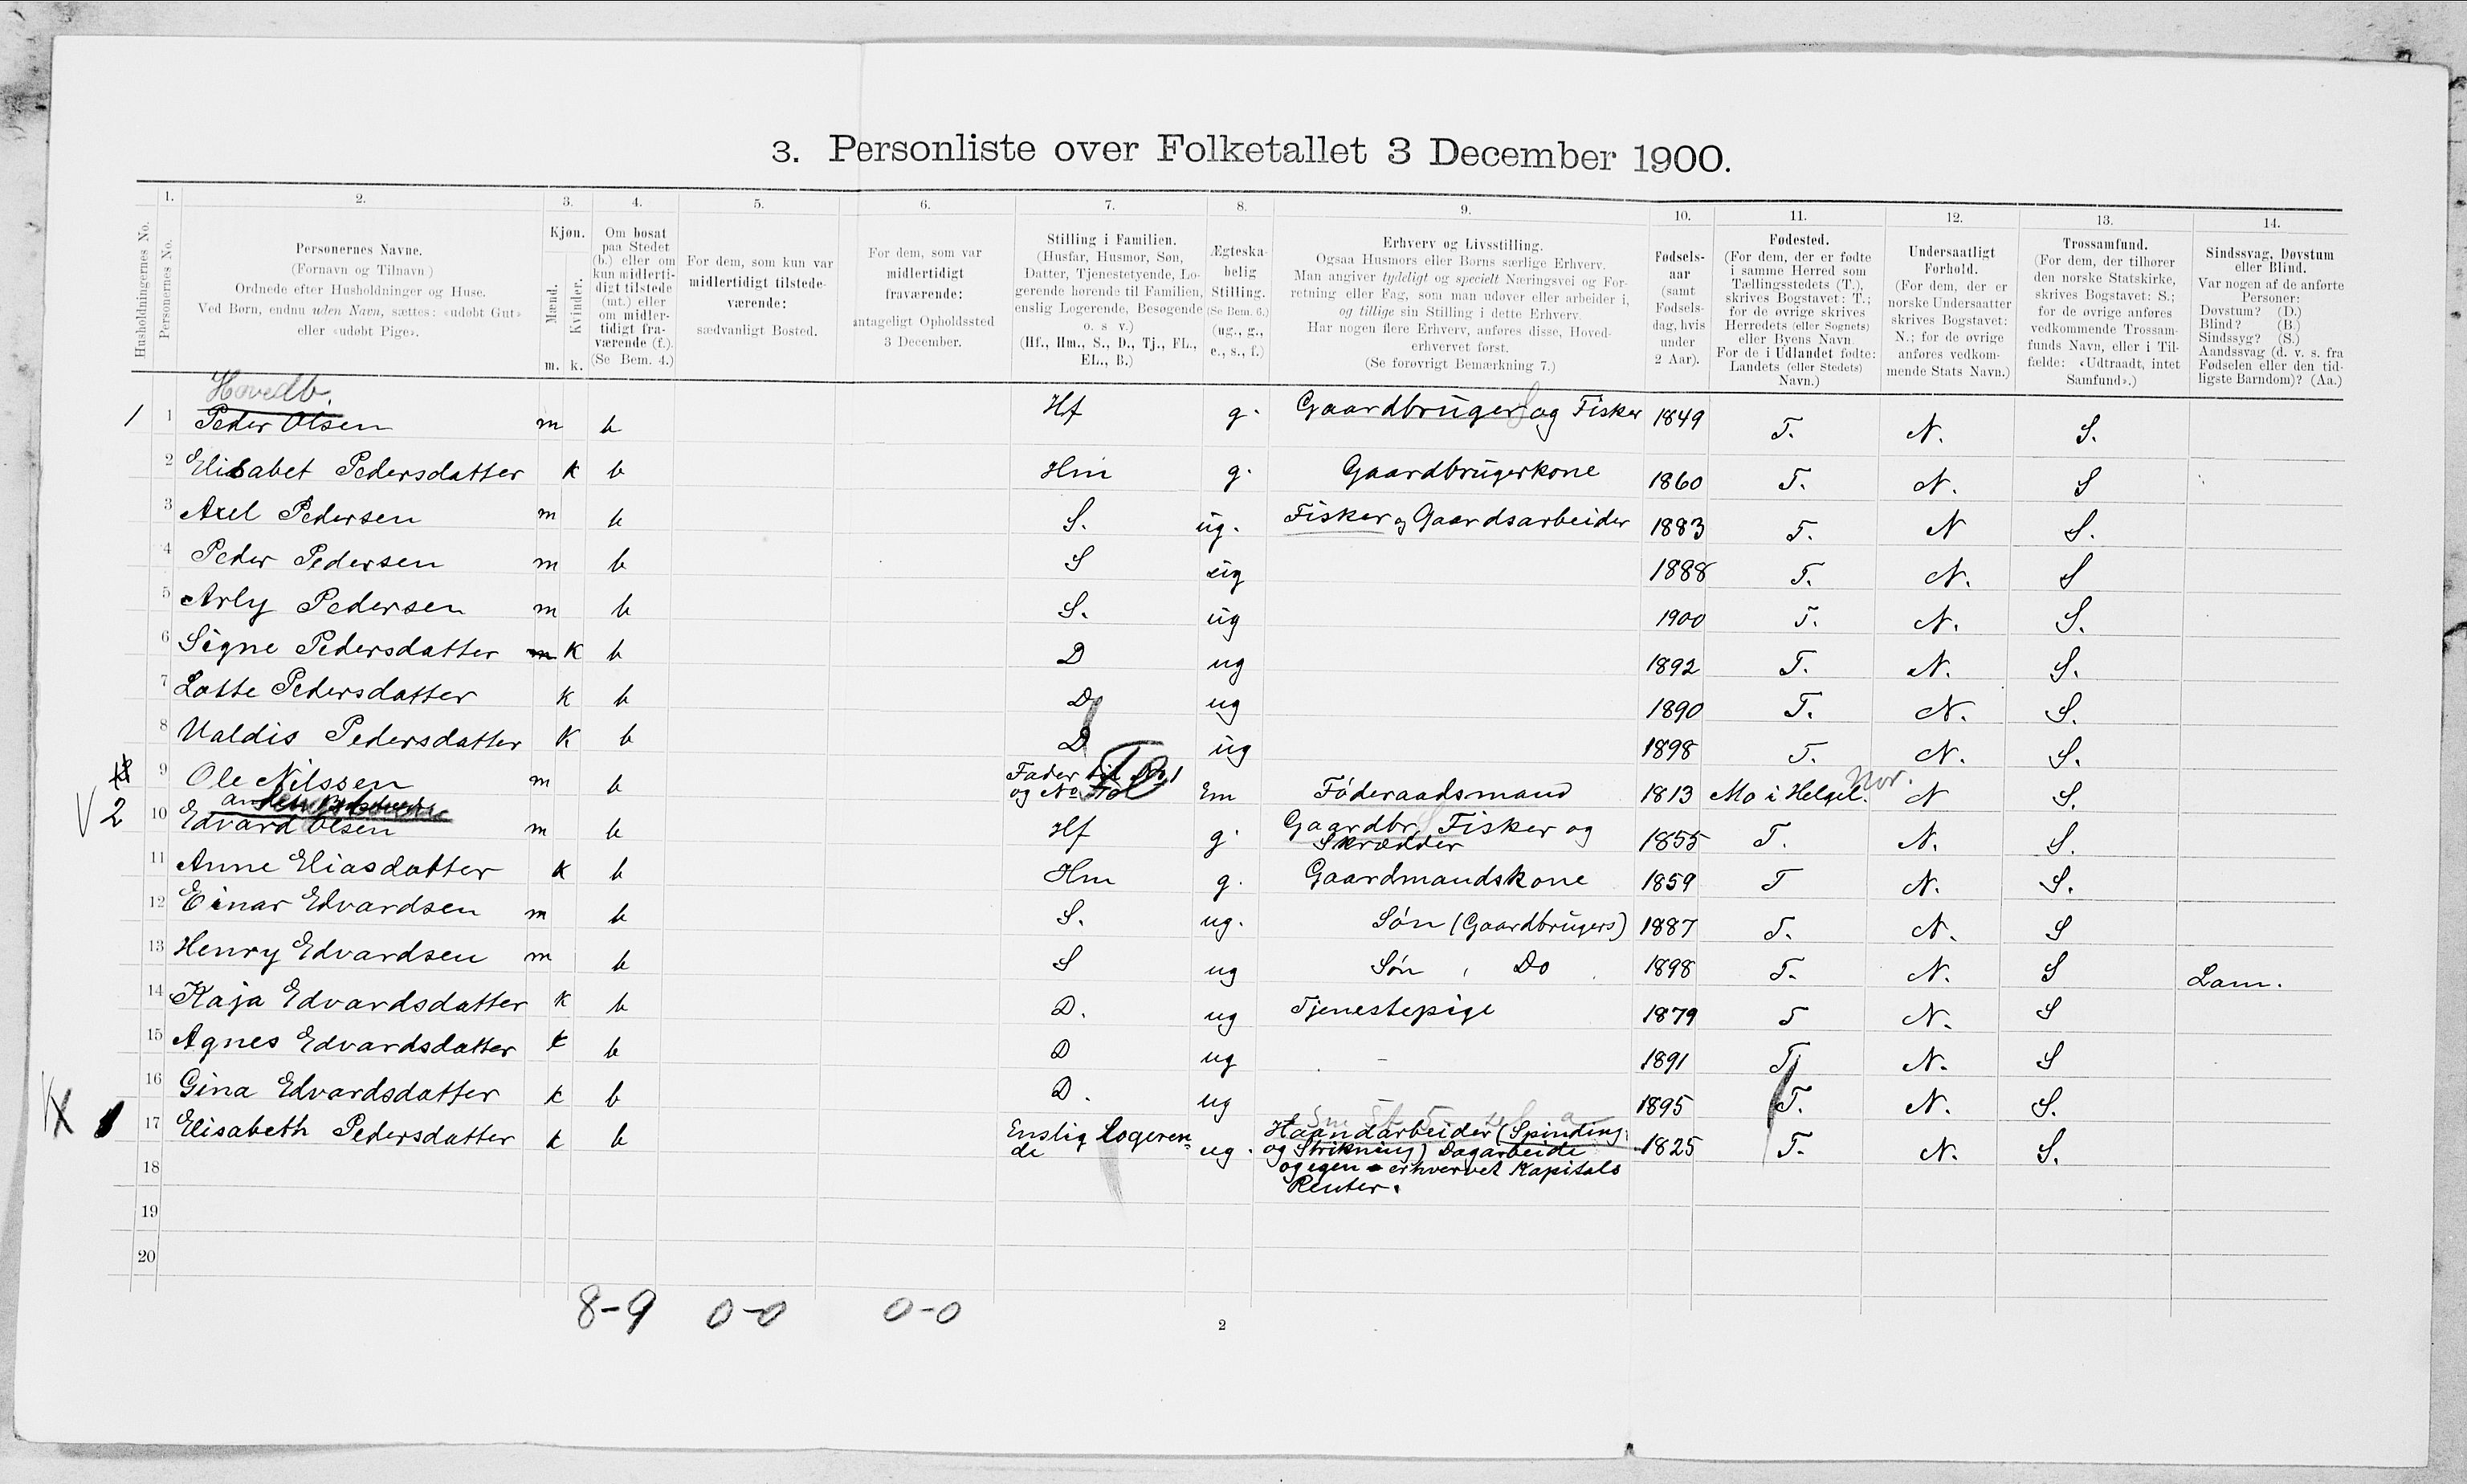 3. Personliste over Folketallet 3 December 1900.
1. 2. 3. 4. 5. 6. 7. 8. 9. 10. 11. 12. 13. 14.
Husholdningernes No.
Personernes No.
Personernes Navne.
(Fornavn og Tilnavn)
Ordnede efter Husholdninger og Huse.
Ved Børn, endnu uden Navn, sættes: «udøbt Gut»
eller «udøbt Pige».
Kjøn.
Mænd.
Kvinder.
m. k.
Om bosat
paa Stedet
(b.) eller om
kun midlerti-
digt tilstede
(mt.) eller
om midler-
tidigt fra-
værende (f.).
(Se Bem. 4.)
For dem, som kun var
midlertidigt tilstede-
værende:
sædvanligt Bosted.
For dem, som var
midlertidigt
fraværende:
antageligt Opholdssted
3 December.
Stilling i Familien.
(Husfar, Husmor, Søn,
Datter, Tjenestetyende, Lo-
gerende hørende til Familien,
enslig Logerende, Besøgende
o. s v.)
(Hf., Hm., S., D., Tj., FL.,
EL., B.)
Ægteska-
belig
Stilling.
(Se Bem. 6.)
(ug., g.,
e., s., f.)
Erhverv og Livsstilling.
Ogsaa Husmors eller Børns særlige Erhverv.
Man angiver tydeligt og specielt Næringsvei og For-
retning eller Fag, som man udøver eller arbeider i,
og tillige sin Stilling i dette Erhverv.
Har nogen flere Erhverv, anføres disse, Hoved-
erhvervet først.
(Se forøvrigt Bemærkning 7.)
Fødsels-
aar
(samt
Fødsels-
dag, hvis
under
2 Aar).
Fødested.
(For dem, der er fødte
i samme Herred som
Tællingsstedets (T.),
skrives Bogstavet: T.;
for de øvrige skrives
Herredets (eller Sognets)
eller Byens Navn.
For de i Udlandet fødte:
Landets (eller Stedets)
Navn.)
Undersaatligt
Forhold.
(For dem, der er
norske Undersaatter
skrives Bogstavet:
N.; for de øvrige
anføres vedkom-
mende Stats Navn.)
Trossamfund.
(For dem, der tilhører
den norske Statskirke,
skrives Bogstavet: S.;
for de øvrige anføres
vedkommende Trossam-
funds Navn, eller i Til-
fælde: «Udtraadt, intet
Samfund».)
Sindssvag, Døvstum
eller Blind.
Var nogen af de anførte
Personer:
Døvstum? (D.)
Blind? (B.)
Sindssyg? (S.)
Aandssvag (d. v. s. fra
Fødselen eller den tid-
ligste Barndom)? (Aa.)
Hovedb.
1 1 Peder Olsen m b Hf g. Gaardbruger og Fisker 1849 T. N. S.
2 Elisabet Pedersdatter k b Hm g. Gaardbrugerkone 1860 T. N. S
3 Axel Pedersen m b S. ug. Fisker og Gaardsarbeider 1883 T. N S.
4 Peder Pedersen m b S ug 1888 T. N. S
5 Arly Pedersen m b S. ug 1900 T. N. S.
6 Signe Pedersdatter m K b D ug 1892 T. N. S.
7 Lotte Pedersdatter K b D ug 1890 T. N. S.
8 Valdis Pedersdatter K b D ug 1898 T. N. S.
9 Ole Nilssen m b Fader til No 1 og No Em Føderaadsmand 1813 Mo i Helgel. Nor. N S.
V 2 10 Edvard Olsen m b Hf g. Gaardbr. Fisker og
Skrædder 1855 T. N. S.
11 Anne Eliasdatter k b Hm g. Gaardmandskone 1859 T N. S.
12 Einar Edvardsen m b S. ug. Søn (Gaardbrugers) 1887 T. N. S
13 Henry Edvardsen m b S ug Søn Do 1898 T. N. S Lam.
14 Kaja Edvardsdatter k b D. ug Tjenestepige 1879 T N. S
15 Agnes Edvardsdatter k b D ug - 1891 T N. S
16 Gina Edvardsdatter k b D. ug 1895 T. N. S.
17 Elisabeth Pedersdatter k b Enslig Logeren-
de ug. Haandarbeider (Spinding
og Strikning) Dagarbeide
og egen erhvervet Kapitals
Renter. 1825 T. N. S.
18
19
20
8-9 0-0 0-0
2